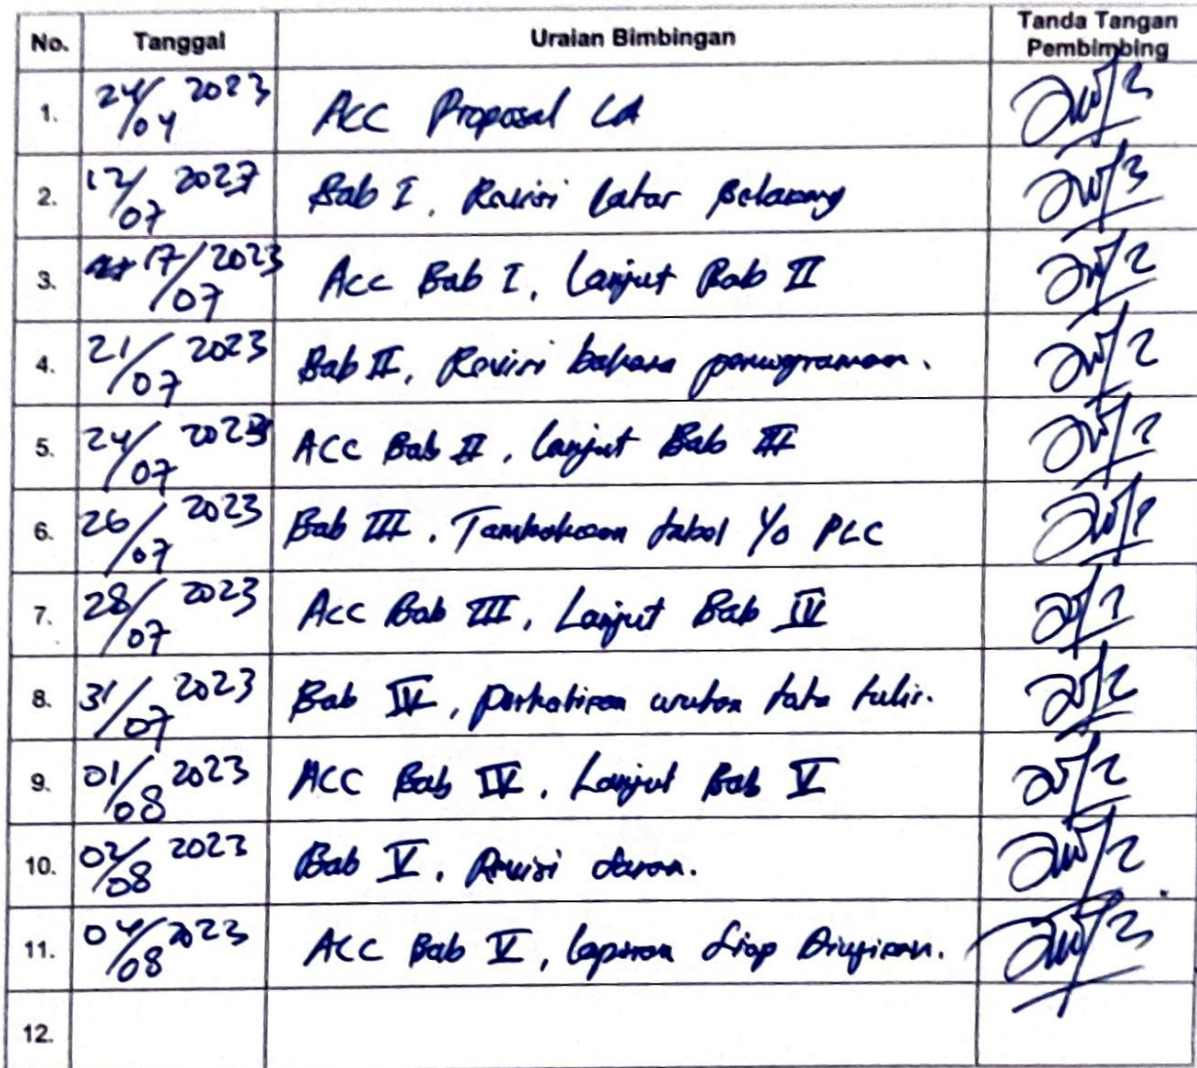 No. Tanggal Uraian Bimbingan Tanda Tangan Pembimbing
1. 24/04 2023 Acc Proposal LA
2. 12/07 2023 Bab I, Revisi latar belakang
3. 17/07 2023 Acc Bab I, Lanjut Bab II
4. 21/07 2023 Bab II, Revisi bahasa pemrograman.
5. 24/07 2023 ACC Bab II, lanjut Bab III
6. 26/07 2023 Bab III. Tambahkan tabel I/O PLC
7. 28/07 2023 Acc Bab III, Lanjut Bab IV
8. 31/07 2023 Bab IV, perhatikan urutan tata tulis.
9. 01/08 2023 ACC Bab IV, Lanjut Bab V
10. 02/08 2023 Bab V, Revisi saran.
11. 04/08 2023 ACC Bab V, laporan siap Diujikan.
12.